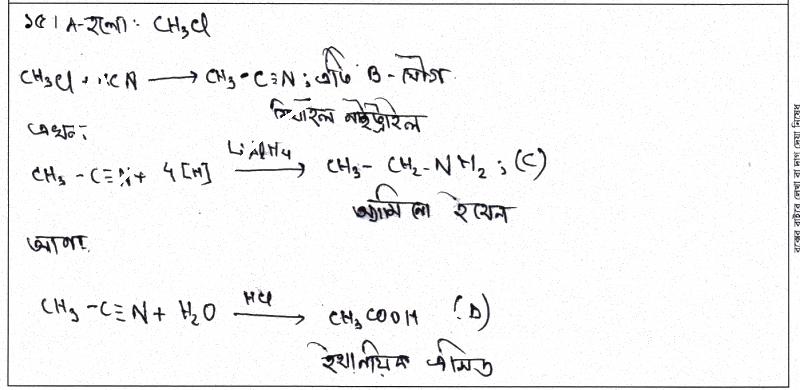 ১৫। A-হলো: CH₃Cl
CH₃Cl + :CN ⟶ CH₃-C≡N; এটি B-যৌগ
মিথাইল নাইট্রাইল
এখন,
CH₃-C≡N + 4[H] LiAlH₄ ⟶ CH₃-CH₂-NH₂; (C)
অ্যামিনো ইথেন
আবার
CH₃-C≡N + H₂O HCl ⟶ CH₃COOH (D)
ইথানয়িক এসিড
বক্সের বাইরে লেখা বা দাগ দেয়া নিষেধ